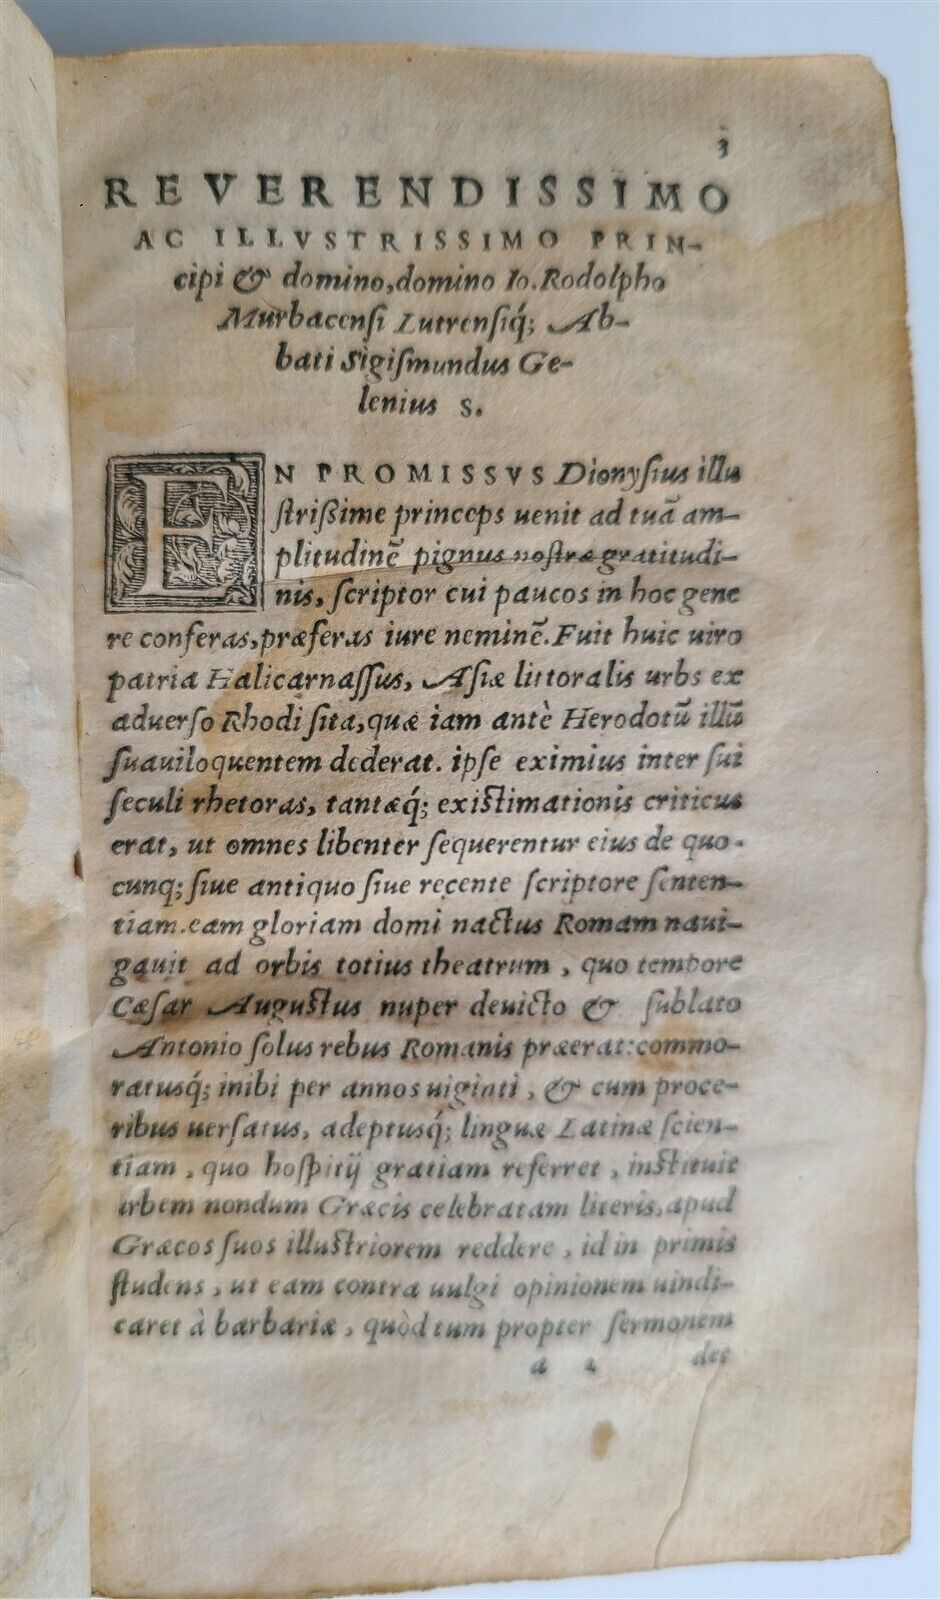 3
REVERENDISSIMO
AC ILLVSTRISSIMO PRIN-
cipi & domino, domino Io. Rodolpho
Murbacensi Lutrensiq́; Ab-
bati Sigiſmundus Ge-
lenius S.
EN PROMISSVS Dionyſius illu
ſtriſsime princeps uenit ad tuā am-
plitudinē pignus noſtræ gratitudi-
nis, ſcriptor cui paucos in hoc gene
re conferas, præferas iure neminē. Fuit huic uiro
patria Halicarnaſſus, Aſiæ littoralis urbs ex
aduerſo Rhodi ſita, quæ iam antè Herodotū illū
ſuauiloquentem dederat. ipſe eximius inter ſui
ſeculi rhetoras, tantæq́; exiſtimationis criticus
erat, ut omnes libenter ſequerentur eius de quo-
cunq; ſiue antiquo ſiue recente ſcriptore ſenten-
tiam. eam gloriam domi nactus Romam naui-
gauit ad orbis totius theatrum, quo tempore
Cæſar Auguſtus nuper deuicto & ſublato
Antonio ſolus rebus Romanis præerat: commo-
ratusq́; inibi per annos uiginti, & cum proce-
ribus uerſatus, adeptusq́; linguæ Latinæ ſcien-
tiam, quo hoſpitij gratiam referret, inſtituit
urbem nondum Græcis celebratam literis, apud
Græcos ſuos illuſtriorem reddere, id in primis
ſtudens, ut eam contra uulgi opinionem uindi-
caret à barbariæ, quòd tum propter ſermonem
a 2 det